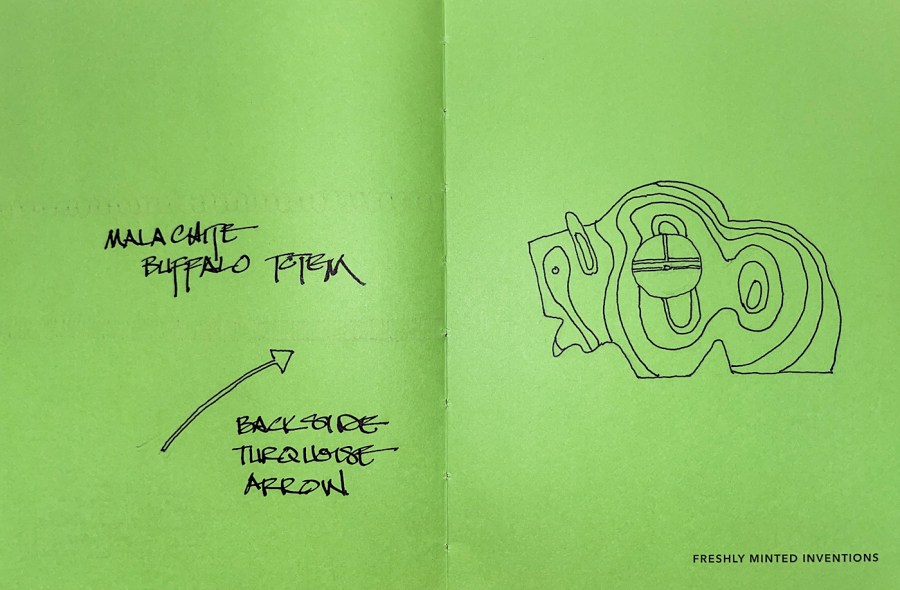 MALACHITE
BUFFALO TOTEM
BACKSIDE
TURQUOISE
ARROW
FRESHLY MINTED INVENTIONS